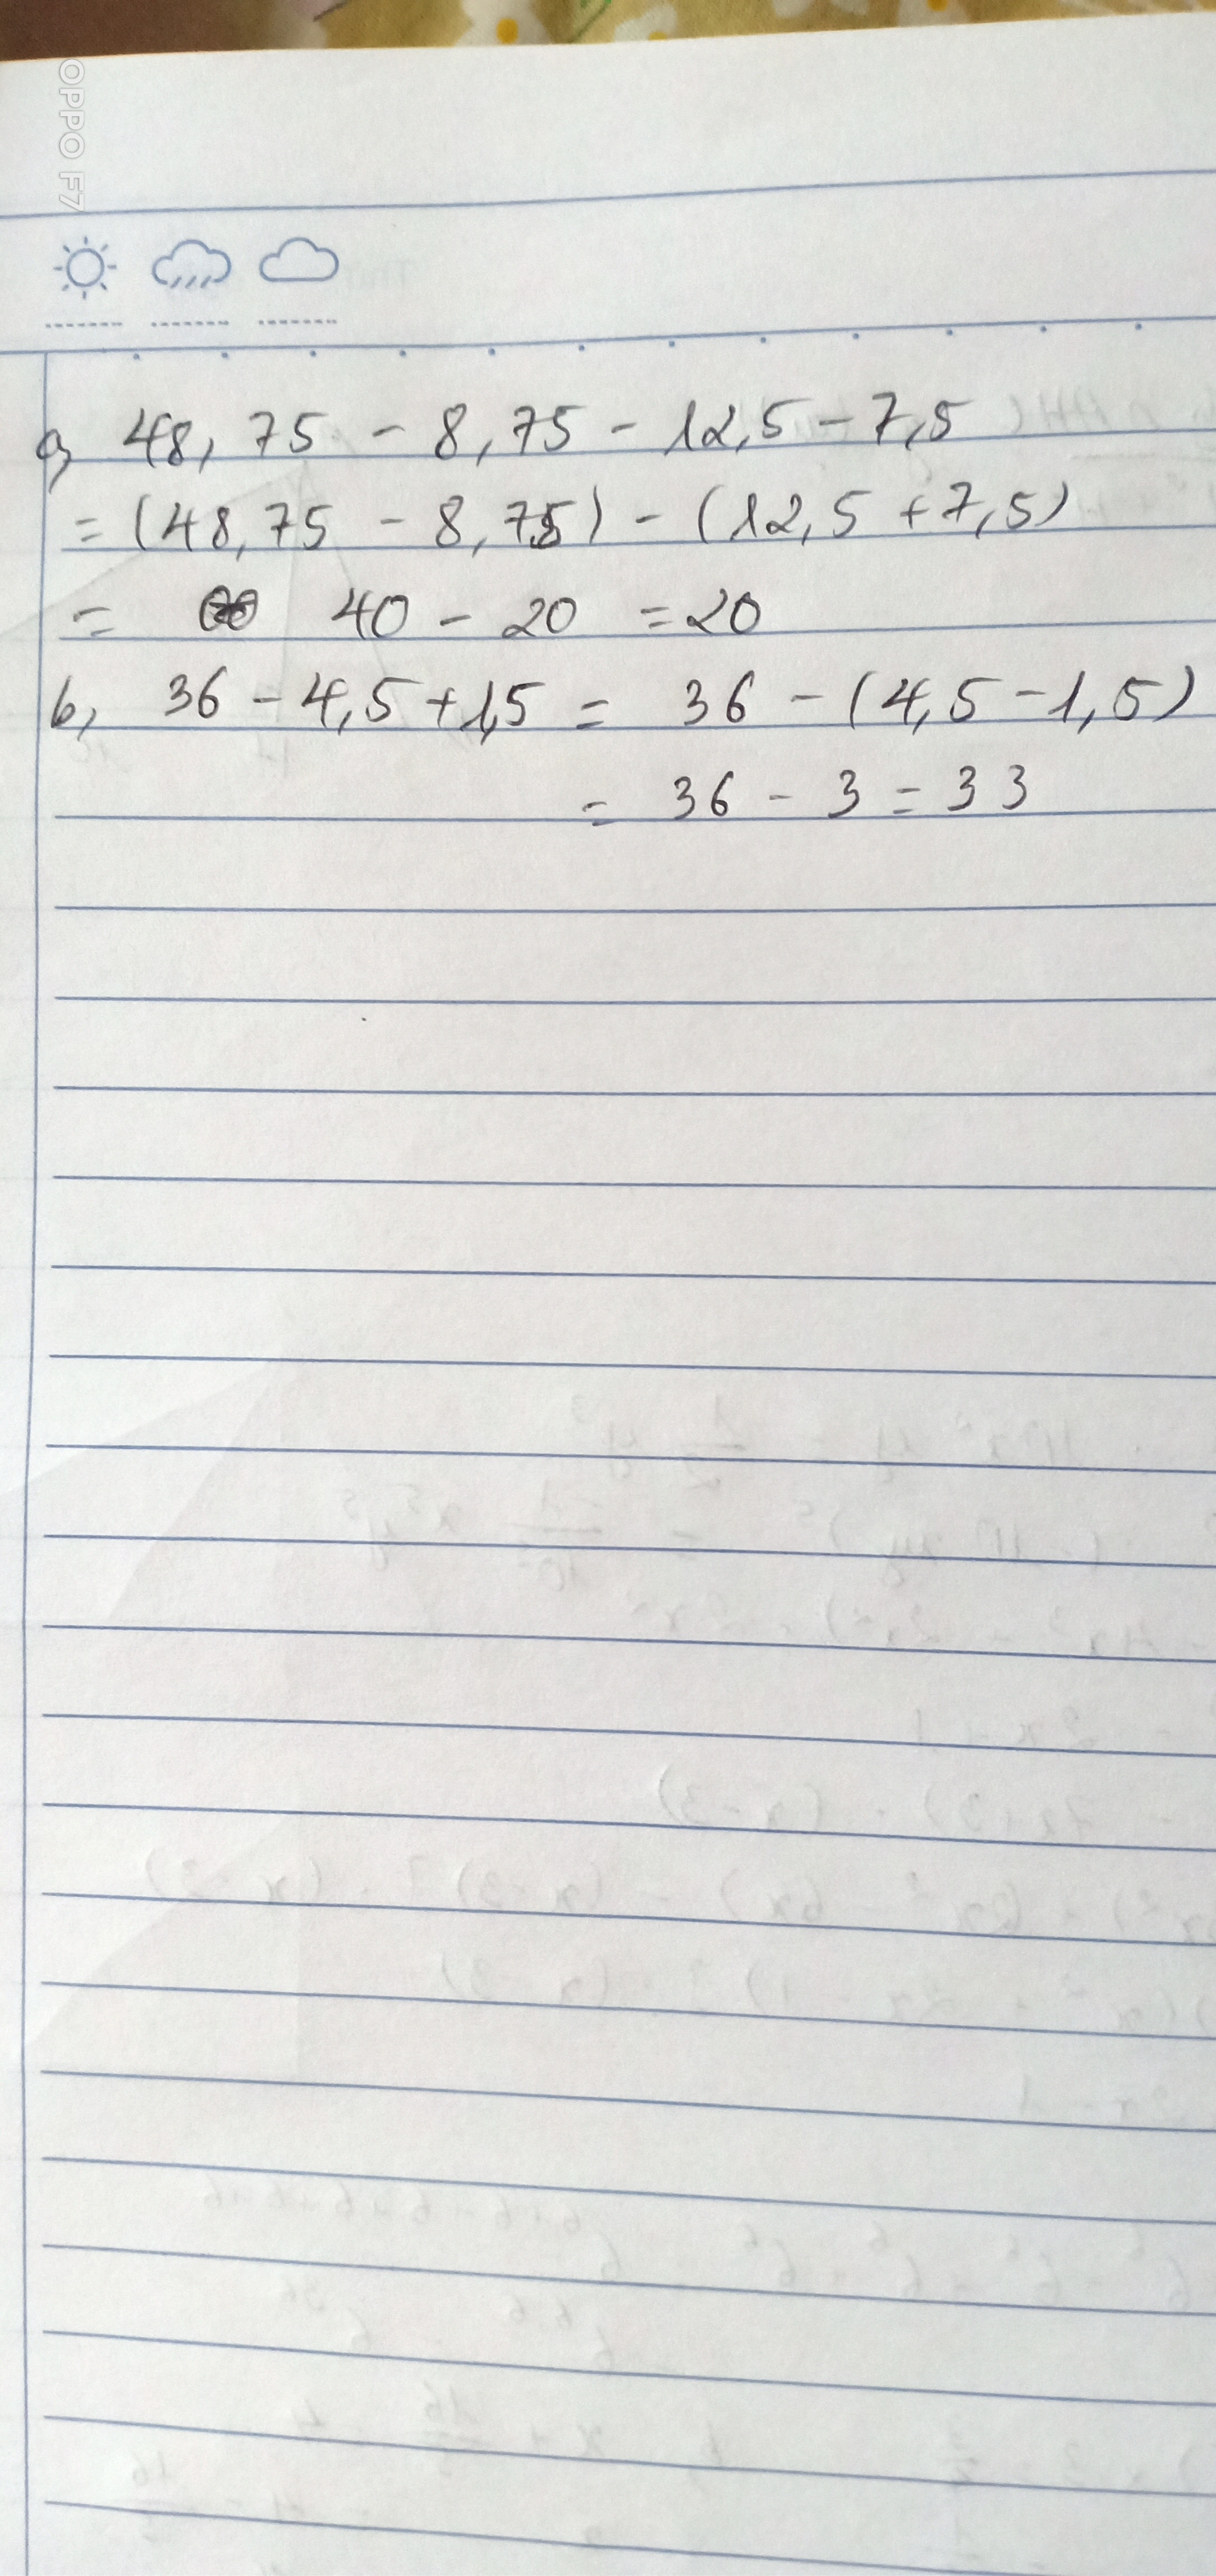 OPPO F7
a, 48,75 - 8,75 - 12,5 - 7,5
= (48,75 - 8,75) - (12,5 + 7,5)
= 40 - 20 = 20
b, 36 - 4,5 + 1,5 = 36 - (4,5 - 1,5)
= 36 - 3 = 33